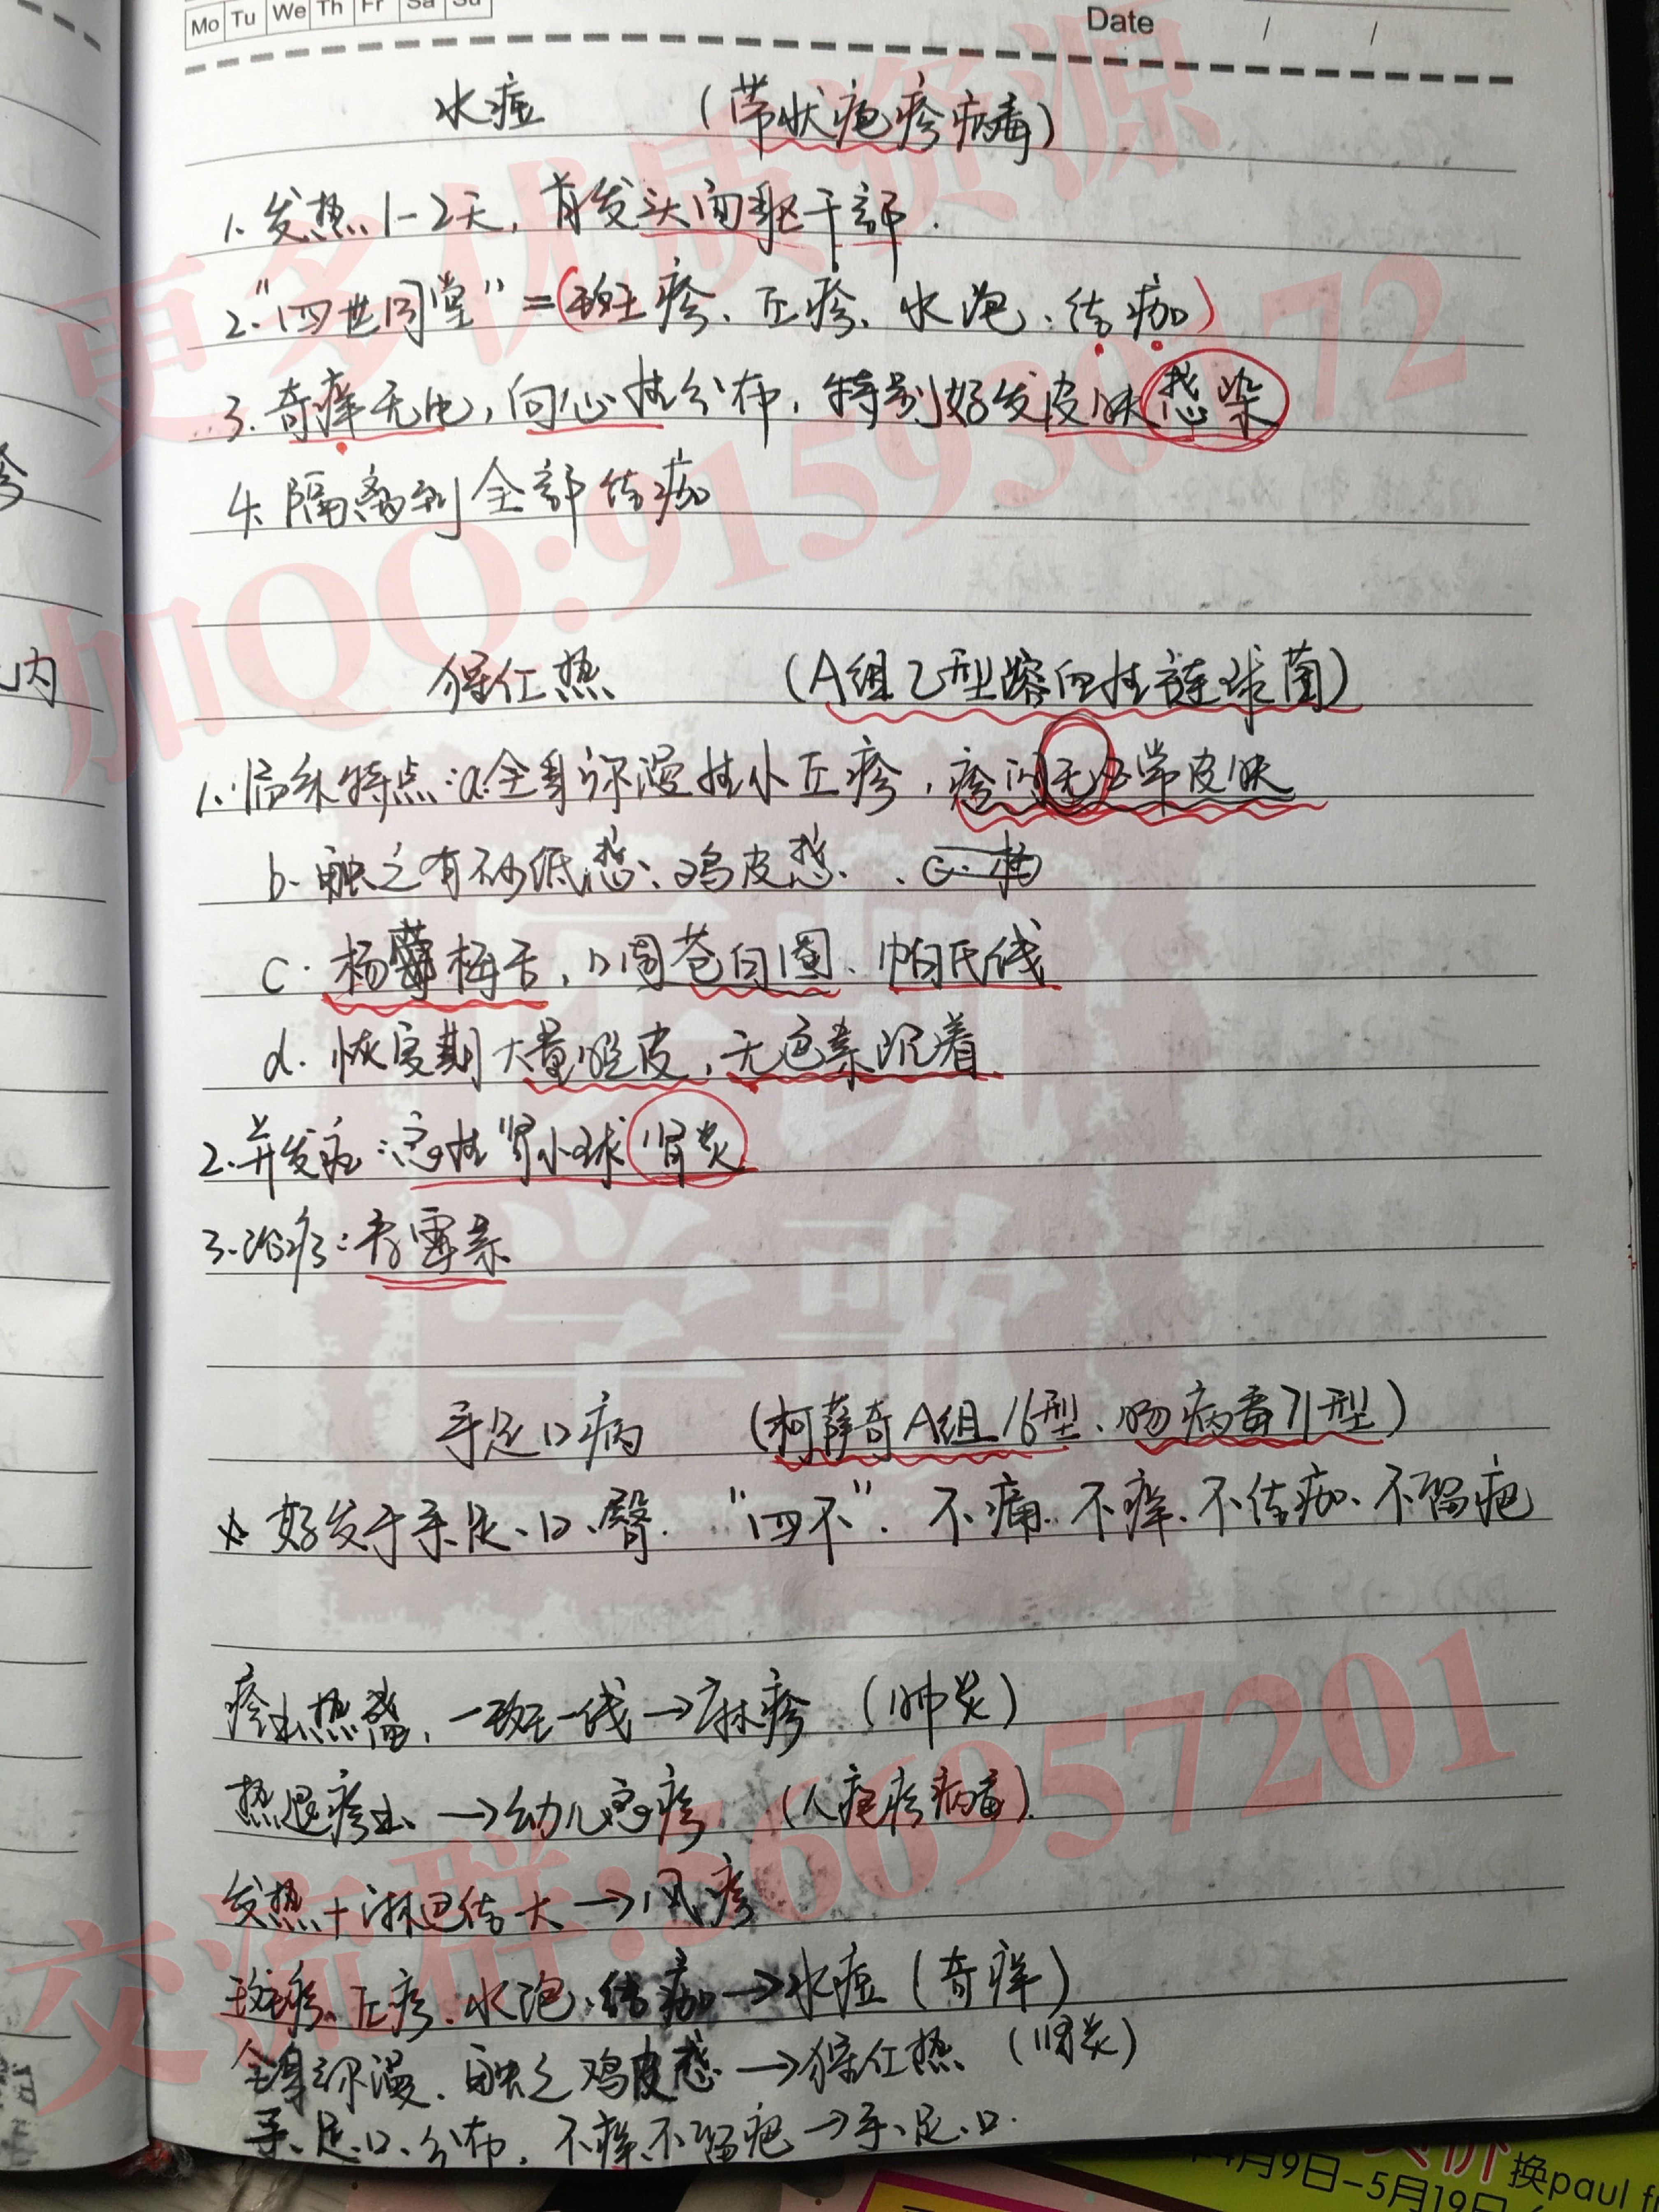 Mo Tu We Th Fr Sa Su
Date / /
水痘 (带状疱疹病毒)
1. 发热1-2天, 首发头面躯干部.
2. "四世同堂" = (斑疹、丘疹、水泡、结痂)
3. 奇痒无比, 向心性分布, 特别好发皮肤感染
4. 隔离到全部结痂
猩红热 (A组乙型溶血性链球菌)
1. 临床特点: a. 全身弥漫性小丘疹, 疹间无正常皮肤
b. 触之有砂纸感、鸡皮感.
c. 杨梅舌, 口周苍白圈、帕氏线
d. 恢复期大量脱皮, 无色素沉着
2. 并发症: 急性肾小球肾炎
3. 治疗: 青霉素
手足口病 (柯萨奇A组16型、肠病毒71型)
☆ 好发于手、足、口、臀. "四不". 不痛、不痒、不结痂、不留疤
疹出热盛, 一斑一线→麻疹 (肺炎)
热退疹出 →幼儿急疹 (人疱疹病毒).
发热+淋巴结大→风疹
斑疹、丘疹、水泡、结痂→水痘 (奇痒)
全身弥漫、触之鸡皮感→猩红热 (肾炎)
手、足、口、分布, 不痒、不留疤→手、足、口.
更多优质资源
加QQ:915930172
医凯
学歌
交流群:566957201
内
4月9日-5月19日
换paul f